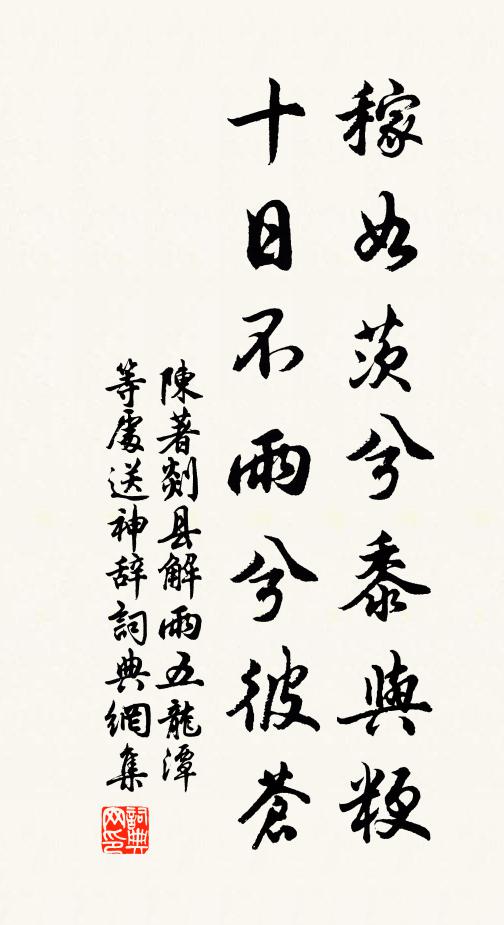 稼如茨兮黍與粳
十日不雨兮彼蒼
陳著剡县解雨五龍潭
等處送神辞詞典網集
詞典网印